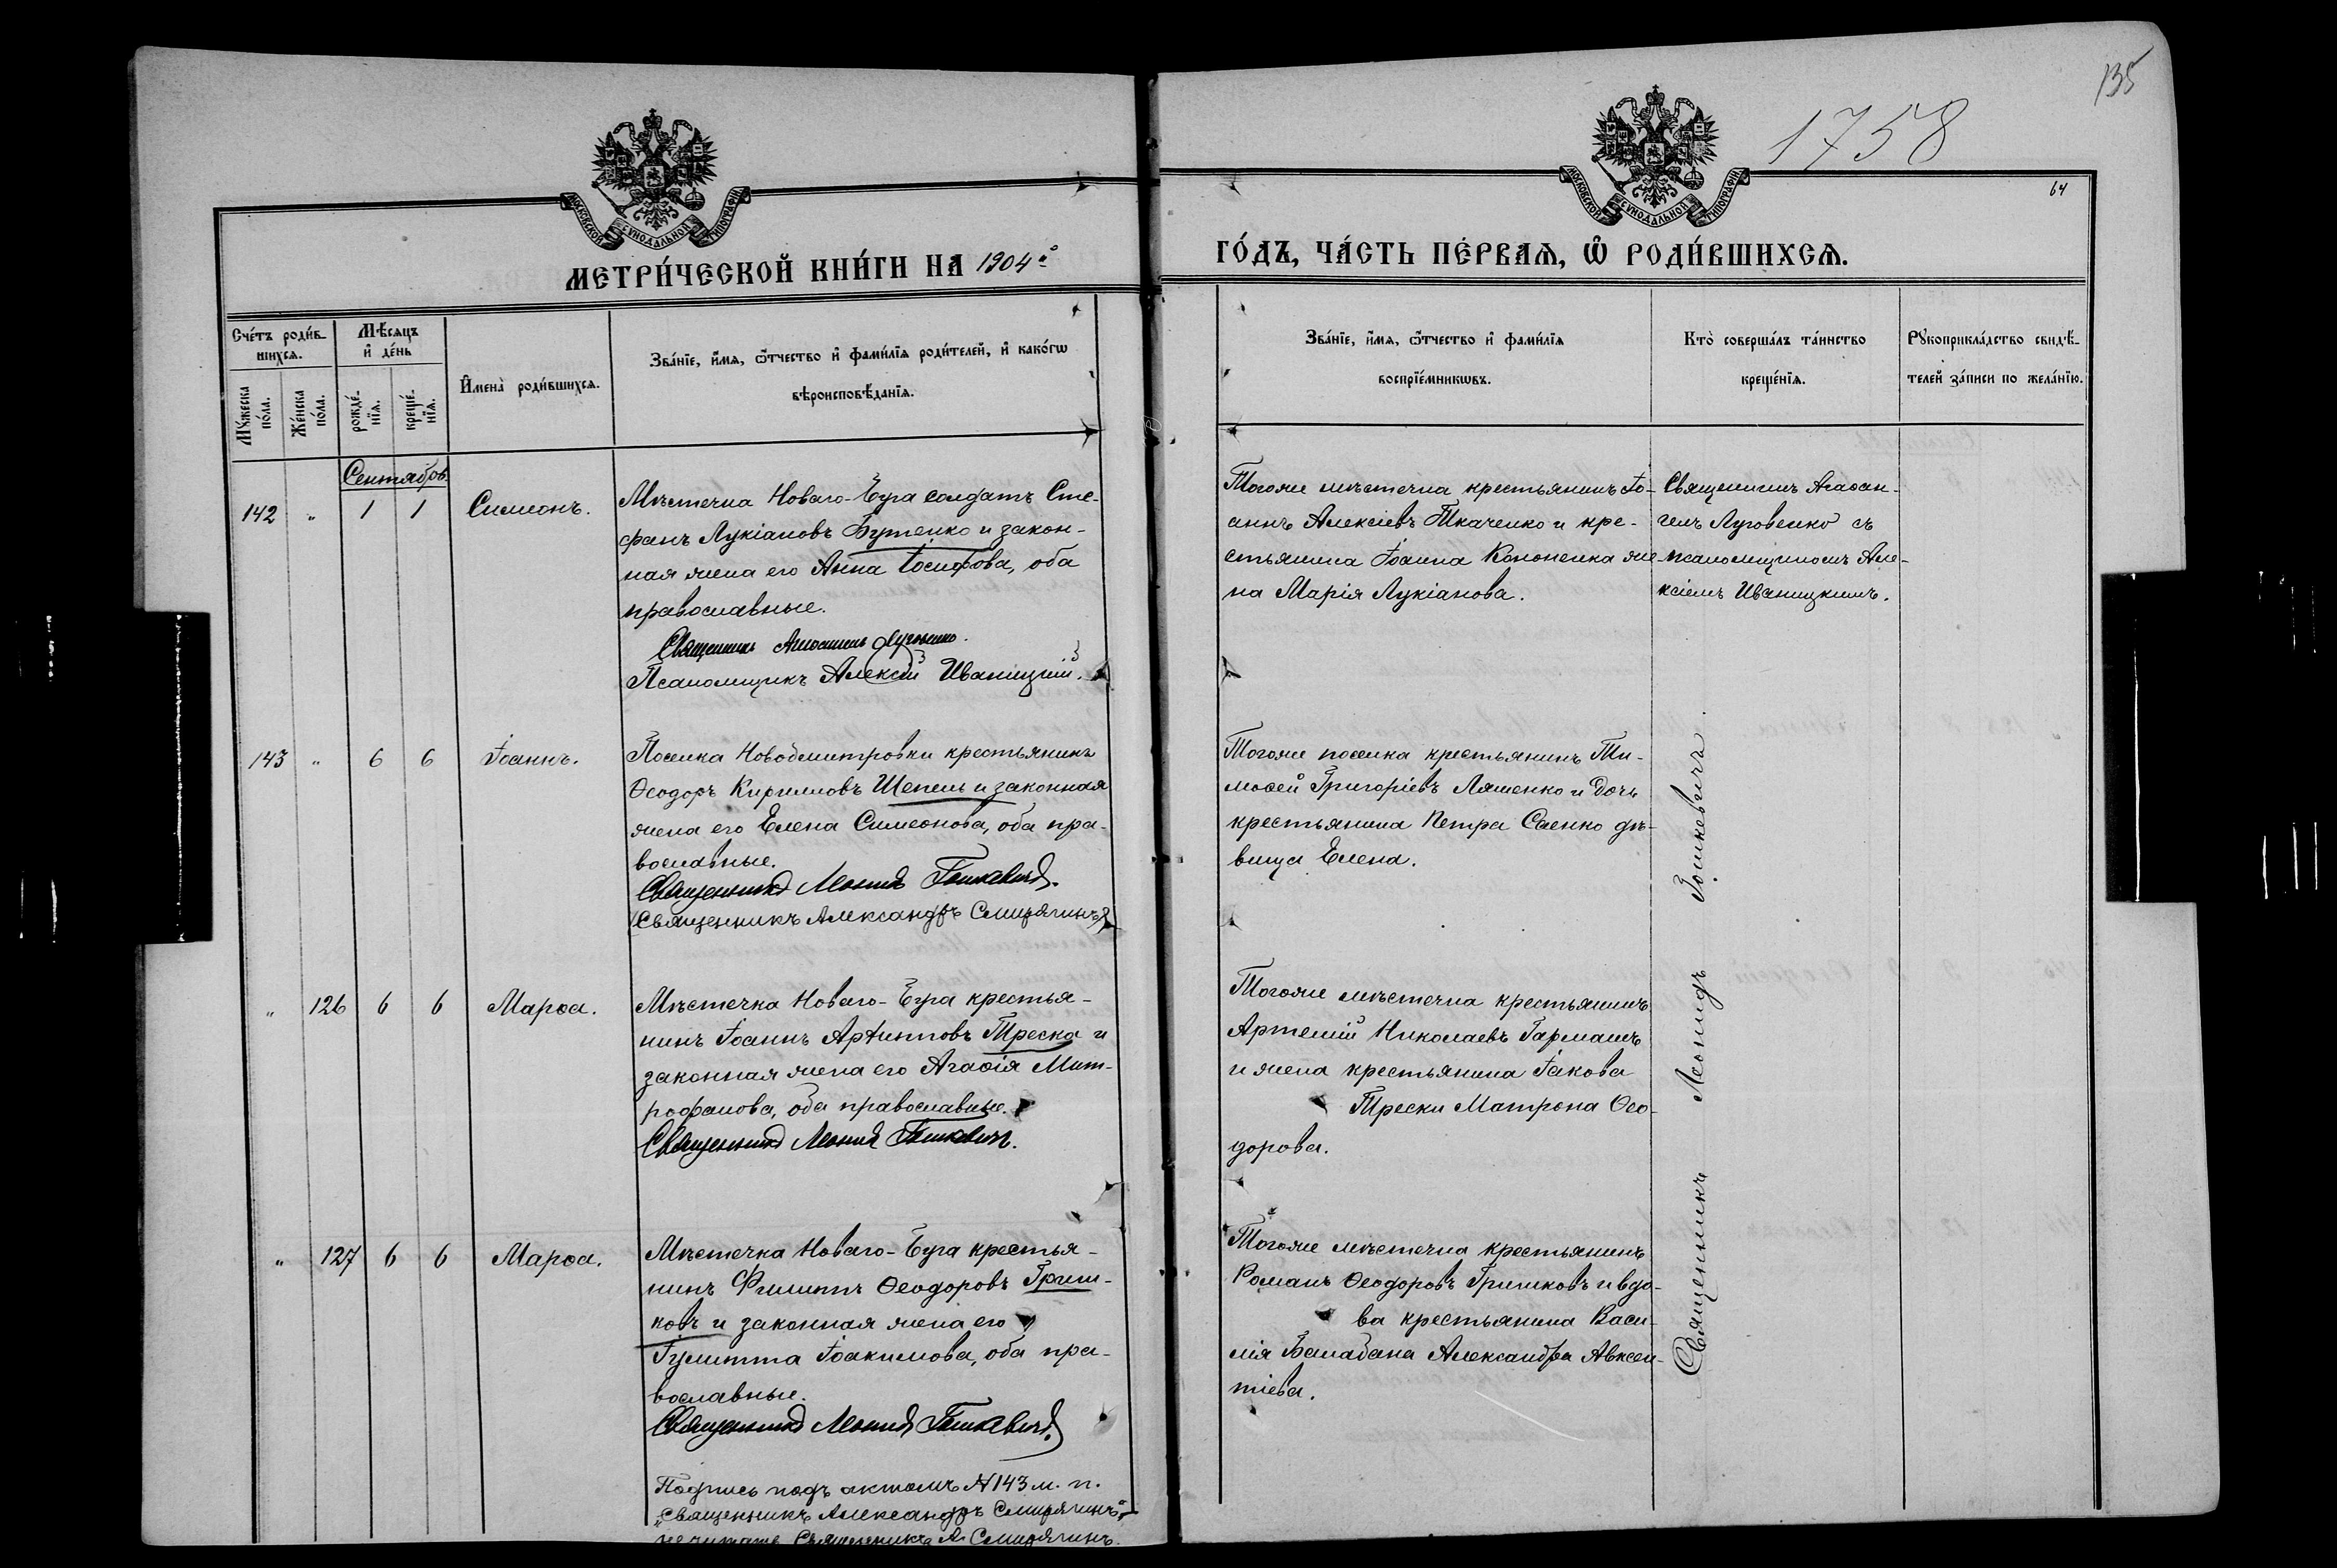 135
1758
64
МОСКОВСКОЙ СѴНОДАЛЬНОЙ ТИПОГРАФІИ
МОСКОВСКОЙ СѴНОДАЛЬНОЙ ТИПОГРАФІИ
МЕТРИ́ЧЕСКОЙ КНИ́ГИ НА 1904й
ГО́ДЪ, ЧА́СТЬ ПЕ́РВАЯ, Ѽ РОДИ́ВШИХСЯ.
Сче́тъ роди́в-
шихся.
Мѣ́сяцъ
и҆ де́нь
Мꙋ́жеска
по́ла.
Же́нска
по́ла.
рожде́-
нїя.
креще́-
нїя.
И҆мена̀ роди́вшихся.
Зва́нїе, и҆́мя, ѻ҆́тчество и҆ фами́лїя роди́телей, и҆ како́гѡ
вѣроисповѣ́данїя.
Зва́нїе, и҆́мя, ѻ҆́тчество и҆ фами́лїя
воспрїе́мникѡвъ.
Кто̀ соверша́лъ та́инство
креще́нїя.
Рꙋкоприкла́дство свидѣ́-
телей за́писи по жела́нїю.
Сентябрь
142 " 1 1 Симеонъ.
Мѣстечка Новаго-Буга солдатъ Сте-
фанъ Лукіановъ Бутенко и закон-
ная жена его Анна Іосифова, оба
православные.
Священникъ Агаѳангелъ Луговенко.
Псаломщикъ Алексій Иваницкій.
Тогоже мѣстечка крестьянинъ Іо-
аннъ Алексіевъ Ткаченко и кре-
стьянина Іоанна Кононенка же-
на Марія Лукіанова.
Священникъ Агаѳан-
гелъ Луговенко съ
псаломщикомъ Але-
ксіемъ Иваницкимъ.
143 " 6 6 Іоаннъ.
Поселка Новодмитровки крестьянинъ
Ѳеодоръ Кирилловъ Шепель и законная
жена его Елена Симеонова, оба пра-
вославные.
Священникъ Леонидъ Гошкевичъ.
(Священникъ Александръ Смирягинъ)
Тогоже поселка крестьянинъ Ти-
моѳей Григоріевъ Ляшенко и дочь
крестьянина Петра Саенко дѣ-
вица Елена.
Священникъ Леонидъ Гошкевичъ.
" 126 6 6 Марѳа.
Мѣстечка Новаго-Буга крестья-
нинъ Іоаннъ Архипповъ Треска и
законная жена его Агаѳія Мит-
рофанова, оба православные.
Священникъ Леонидъ Гошкевичъ.
Тогоже мѣстечка крестьянинъ
Артемій Николаевъ Гармашъ
и жена крестьянина Іакова
Трески Матрона Ѳео-
дорова.
" 127 6 6 Марѳа.
Мѣстечка Новаго-Буга крестья-
нинъ Филиппъ Ѳеодоровъ Гриш-
ковъ и законная жена его
Гулитта Іоакимова, оба пра-
вославные.
Священникъ Леонидъ Гошкевичъ.
Тогоже мѣстечка крестьянинъ
Романъ Ѳеодоровъ Гришковъ и вдо-
ва крестьянина Васи-
лія Балабана Александра Авксен-
тіева.
Подпись подъ актомъ №143 м. п.
"Священникъ Александръ Смирягинъ"
не читать. Священникъ А. Смирягинъ.